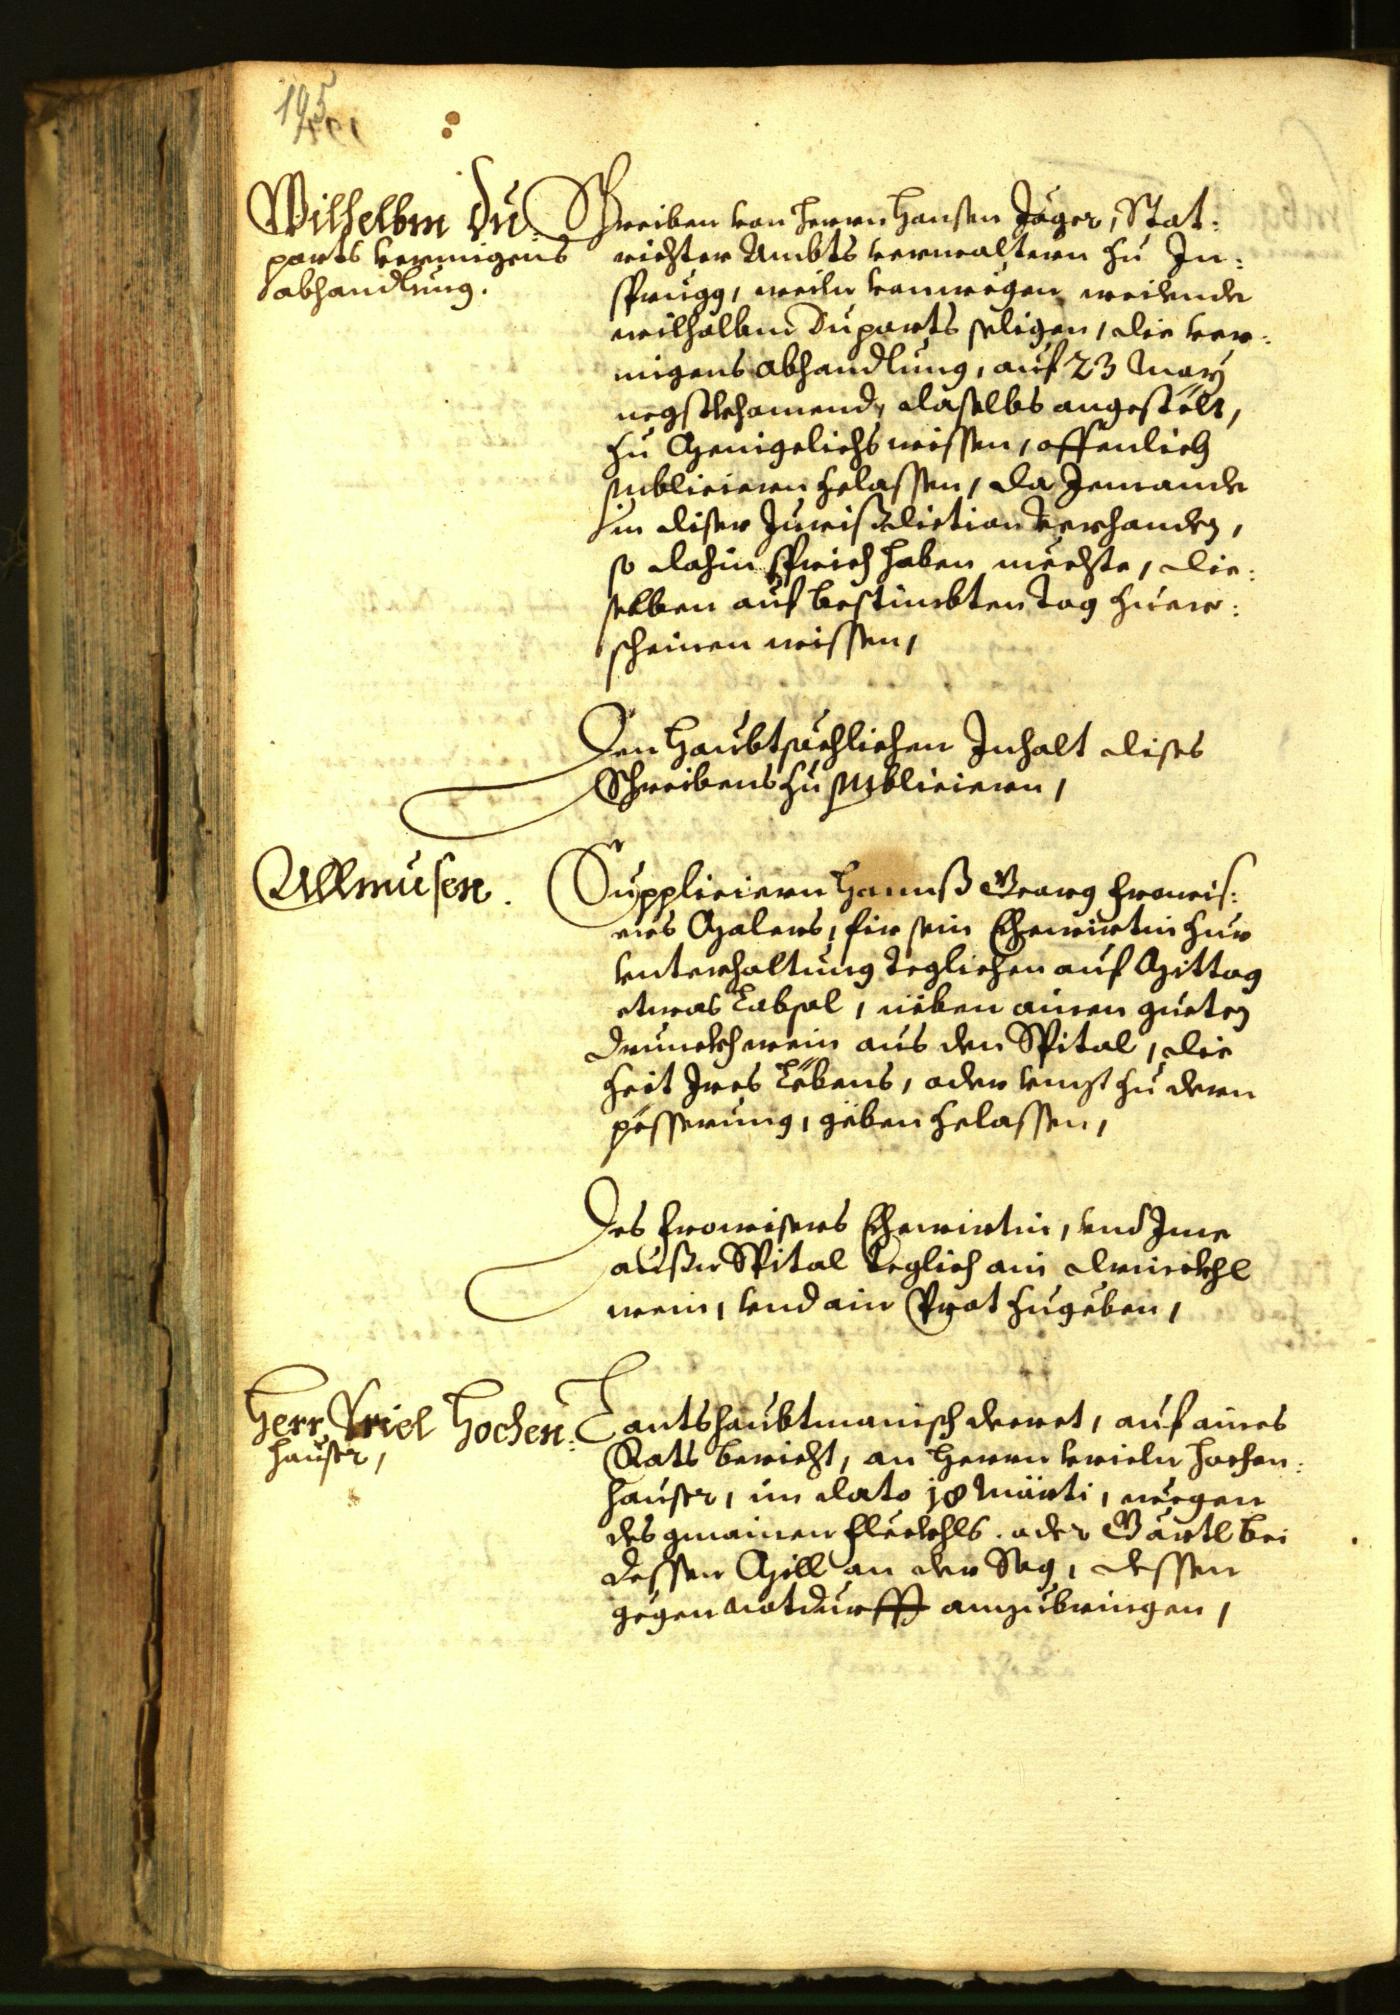 195
Wilhelbm Du-
parts vermigens
abhandlung.
Schreiben von Herrn Hansen Jäger, Stat-
richter Ambts verwaltern zu In-
sprugg, weiln vonwegen weilende
wilhalbm Duparts seligen, die ver-
migens abhandlung, auf 23 Marty
negstkhomend, daselbs angestelt,
zu Menigelichs wissen, offenlich
publicieren zelassen, da Jemande
in diser Jurisdiction verhanden,
so dahin sprich haben mechte, die-
selben auf bestimbten Tag zuer-
scheinen wissen,
Den Haubtsächlichen Inhalt dises
Schreibens zu publicieren,
Allmusen.
Supplicieren Hannß Georg Frowis-
ers Malers, fir sein Ehewirtin zur
unterhaltung teglichen auf Mittag
etwas Labsal, neben ainen gueten
Drunckh wein aus den Spital, die
Zeit Ires Lebens, oder unzt zu dern
pesserung, geben zelassen,
Des Frowisers Ehewirtin, und Ime
außn Spital teglich ain Drinckhl
wein, und ain Prot zugeben,
Herr Vriel Hochen-
hauser,
Lantshaubtmanisch decret, auf aines
Rats bericht, an Herrn Vrieln Hochen-
hauser, im dato 18 Märti, wegen
des gmainen Fleckhls oder Gärtl bei
dessen Mill an der Sag, dessen
gegen notdurfft anzubringen,